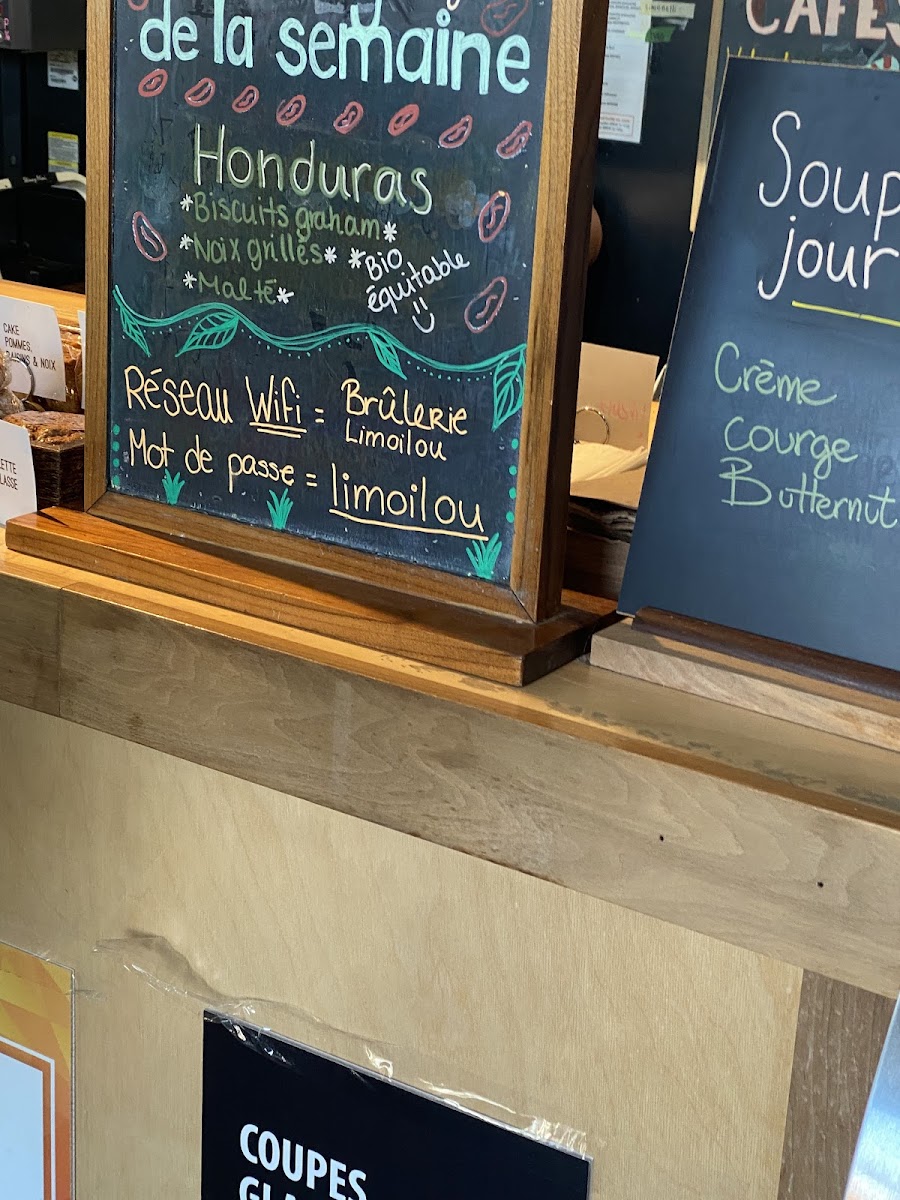 de la semaine
Honduras
*Biscuits graham*
*Noix grillés*
*Malté*
*Bio
équitable
Réseau Wifi = Brûlerie
Limoilou
Mot de passe = limoilou
CAFÉS
Soup
jour
Crème
courge
Butternut
CAKE
POMMES,
RAISINS & NOIX
COUPES